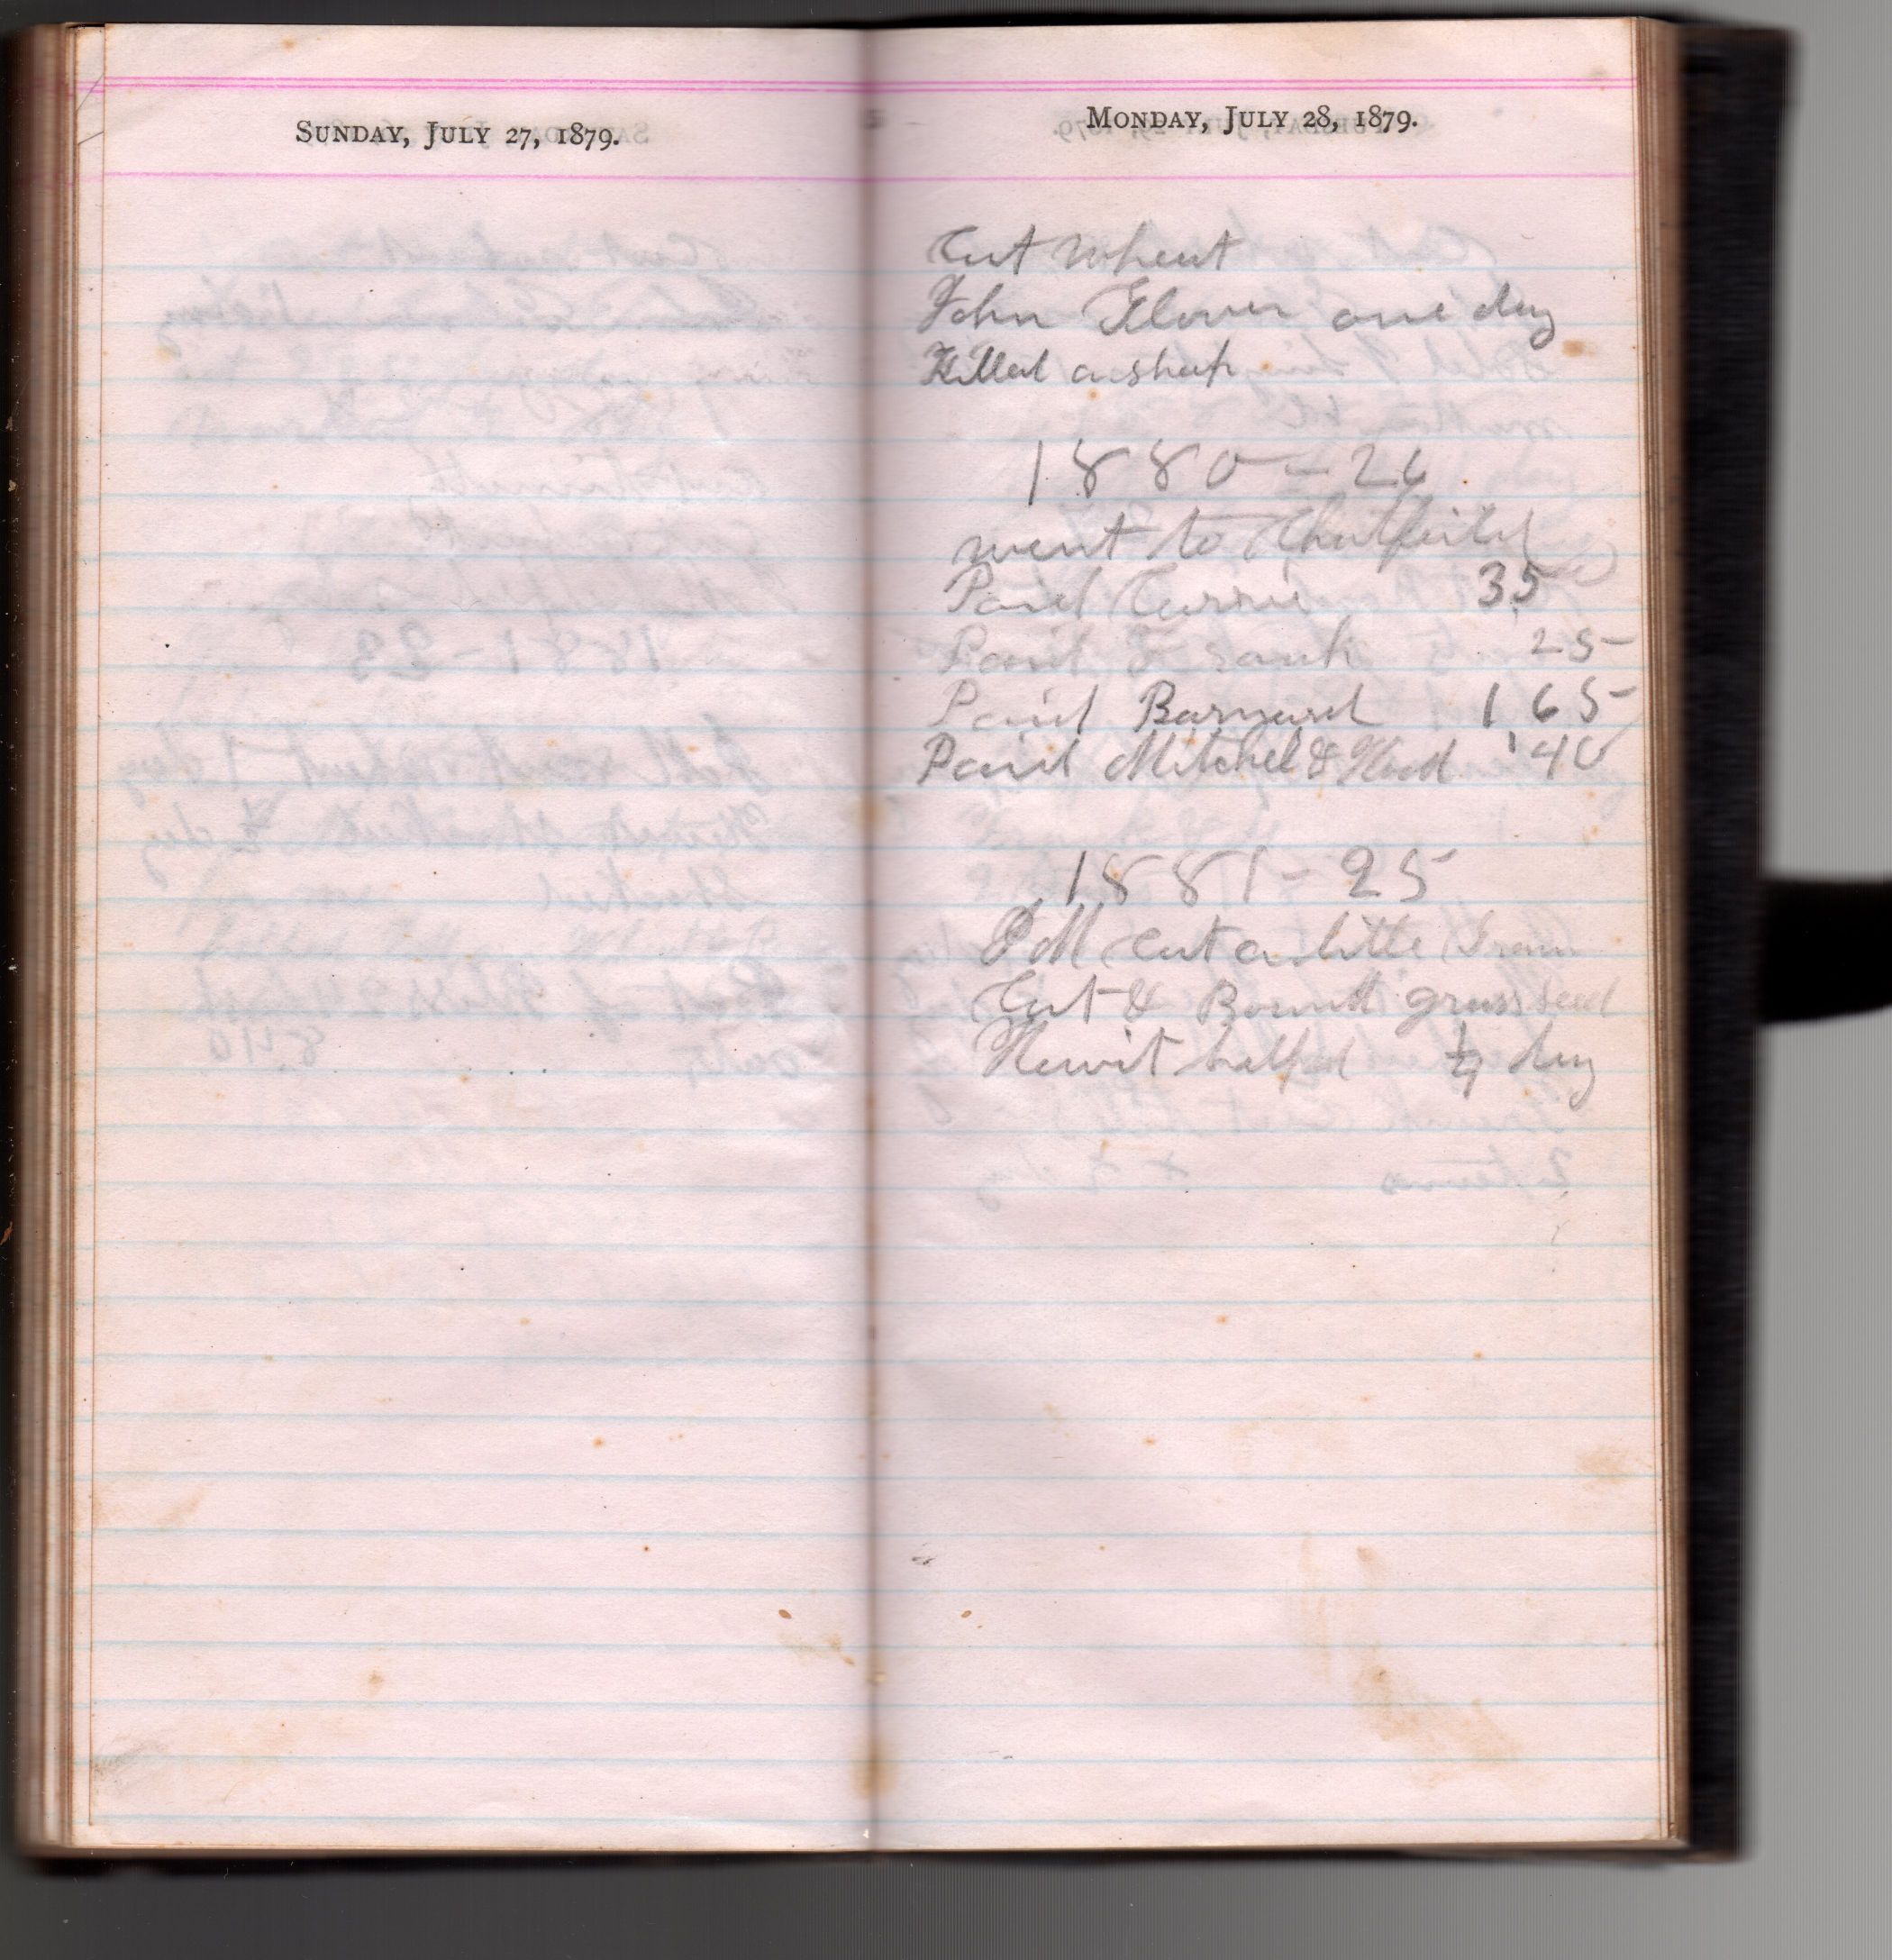 SUNDAY, JULY 27, 1879.
MONDAY, JULY 28, 1879.
Cut wheat
John Glover one day
Killed a sheep
1880 - 26
went to Chatfield
Paid Currie 35
Paid 25
Paid Barnard 1 65
Paid Mitchel & Hood 40
1881 - 25
P M cut a little
Cut & Bound grass seed
Hewit helped 1/4 day